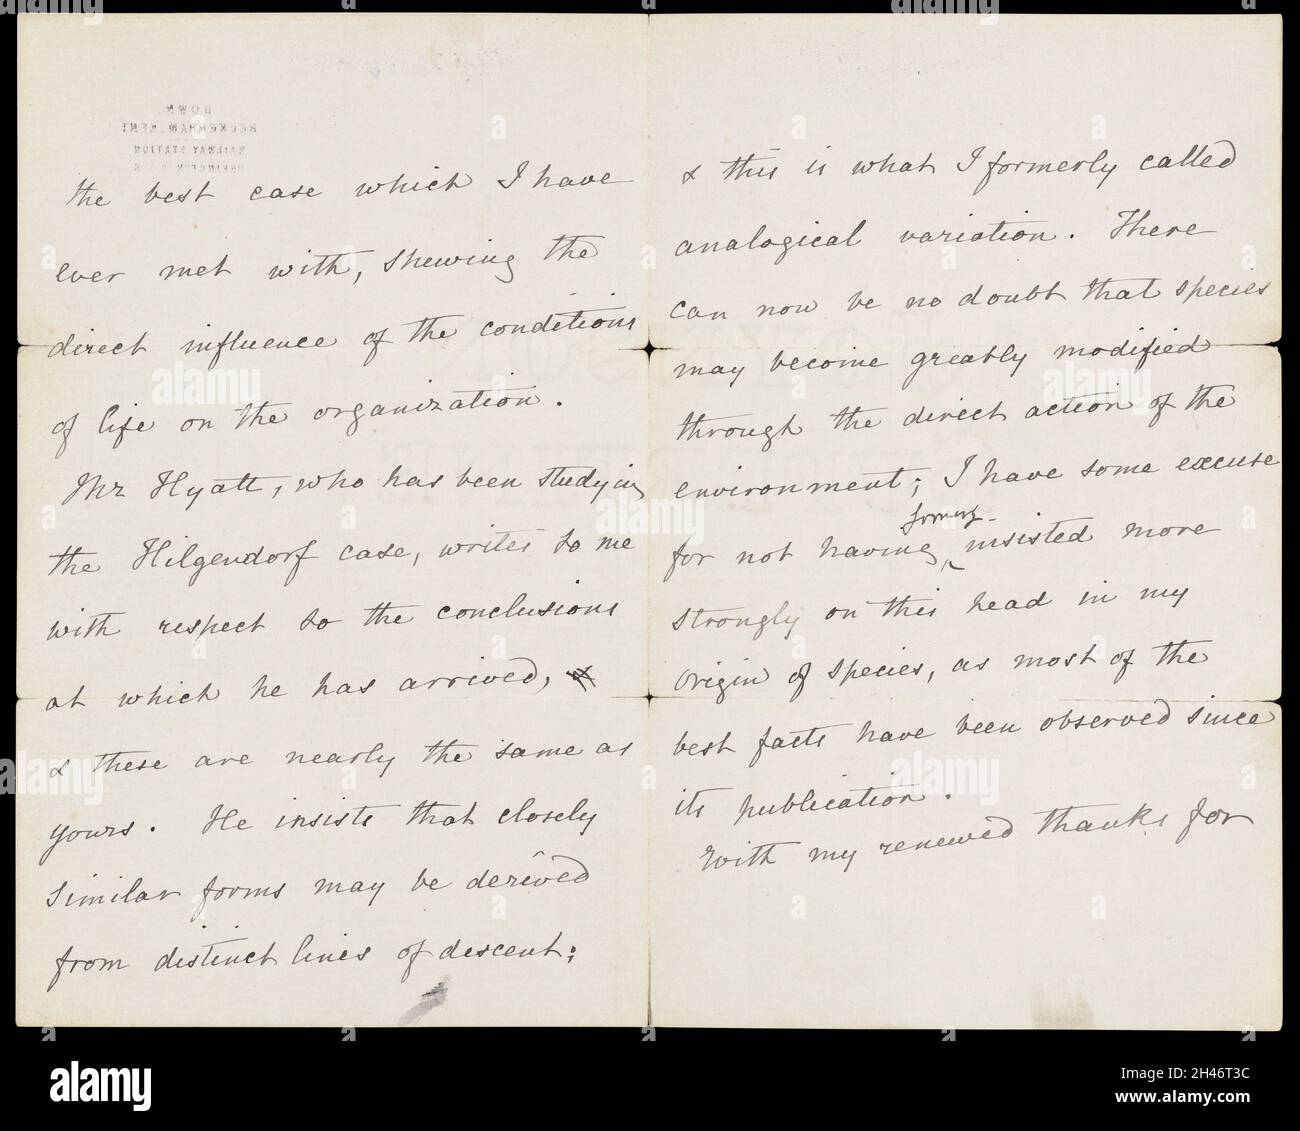 DOWN,
BECKENHAM, KENT.
RAILWAY STATION
the best case which I have
ever met with, shewing the
direct influence of the conditions
of life on the organization.
Mr Hyatt, who has been studying
the Hilgendorf case, writes to me
with respect to the conclusions
at which he has arrived, &
& these are nearly the same as
yours. He insists that closely
similar forms may be derived
from distinct lines of descent;
& this is what I formerly called
analogical variation. There
can now be no doubt that species
may become greatly modified
through the direct action of the
environment; I have some excuse
formerly
for not having insisted more
strongly on this head in my
origin of species, as most of the
best facts have been observed since
its publication.
With my renewed thanks for
alamy
Image ID: 2H46T3C
www.alamy.com